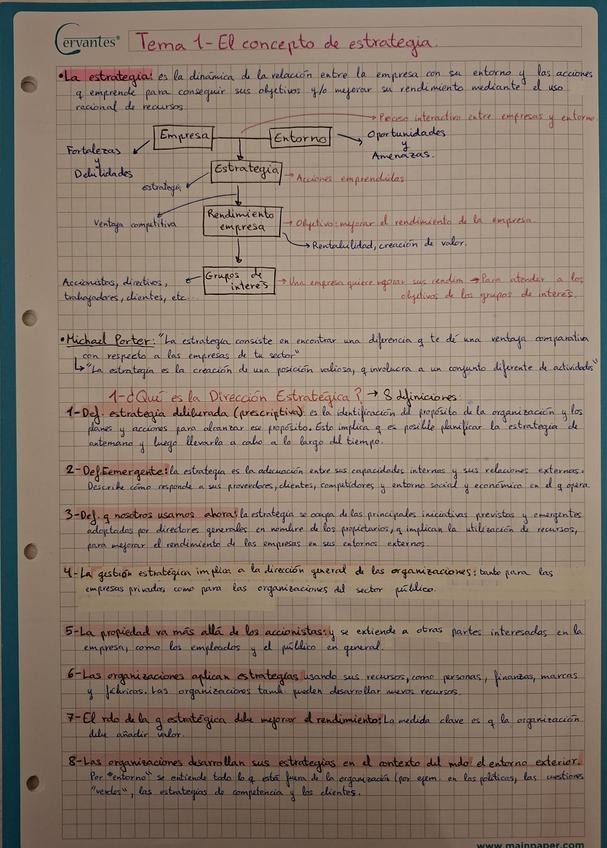 Cervantes®
Tema 1- El concepto de estrategia.
•La estrategia: es la dinámica de la relación entre la empresa con su entorno y las acciones
q emprende para conseguir sus objetivos y/o mejorar su rendimiento mediante el uso
racional de recursos.
→Proceso interactivo entre empresas y entorno
Empresa
Entorno
Oportunidades
y
Amenazas.
Fortalezas
y
Debilidades
Estrategia
→Acciones emprendidas
estrategia
Ventaja competitiva
Rendimiento
empresa
→Objetivo: mejorar el rendimiento de la empresa.
→Rentabilidad, creación de valor.
Accionistas, directivos,
trabajadores, clientes, etc...
Grupos de
interés
→Una empresa quiere mejorar sus rendim →Para atender a los
objetivos de los grupos de interés.
•Michael Porter: "La estrategia consiste en encontrar una diferencia q te dé una ventaja comparativa
con respecto a las empresas de tu sector"
↳"La estrategia es la creación de una posición valiosa, q involucra a un conjunto diferente de actividades"
1-¿Qué es la Dirección Estratégica? → 8 definiciones:
1-Def. estrategia deliberada (prescriptiva): es la identificación del propósito de la organización y los
planes y acciones para alcanzar ese propósito. Esto implica q es posible planificar la estrategia de
antemano y luego llevarla a cabo a lo largo del tiempo.
2-Def. Eemergente: la estrategia es la adecuación entre sus capacidades internas y sus relaciones externas.
Describe cómo responde a sus proveedores, clientes, competidores y entorno social y económico en el q opera.
3-Def. q nosotros usamos ahora: la estrategia se ocupa de las principales iniciativas previstas y emergentes
adoptadas por directores generales en nombre de los propietarios, q implican la utilización de recursos,
para mejorar el rendimiento de las empresas en sus entornos externos.
4-La gestión estratégica implica a la dirección general de las organizaciones: tanto para las
empresas privadas como para las organizaciones del sector público.
5-La propiedad va más allá de los accionistas: y se extiende a otras partes interesadas en la
empresa, como los empleados y el público en general.
6-Las organizaciones aplican estrategias usando sus recursos, como personas, finanzas, marcas
y fábricas. Las organizaciones tamb pueden desarrollar nuevos recursos.
7-El rdo de la g estratégica debe mejorar el rendimiento: La medida clave es q la organización
debe añadir valor.
8-Las organizaciones desarrollan sus estrategias en el contexto del mdo: el entorno exterior.
Por "entorno" se entiende todo lo q está fuera de la organización (por ejem. en las políticas, las cuestiones
"verdes", las estrategias de competencia y los clientes.
www.mainpaper.com